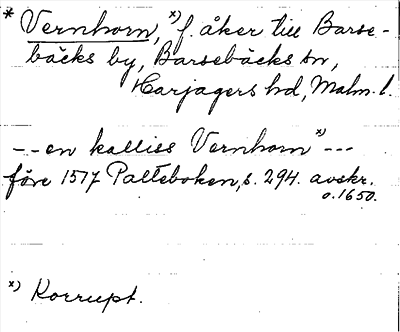 * Vernhorn, *) f. åker till Barse-
bäcks by, Barsebäcks sn,
Harjagers hd, Malm. l.
-- en kalliss Vernhorn *) ---
före 1517 Palteboken, s. 294. avskr.
o. 1650.
*) Korrupt.